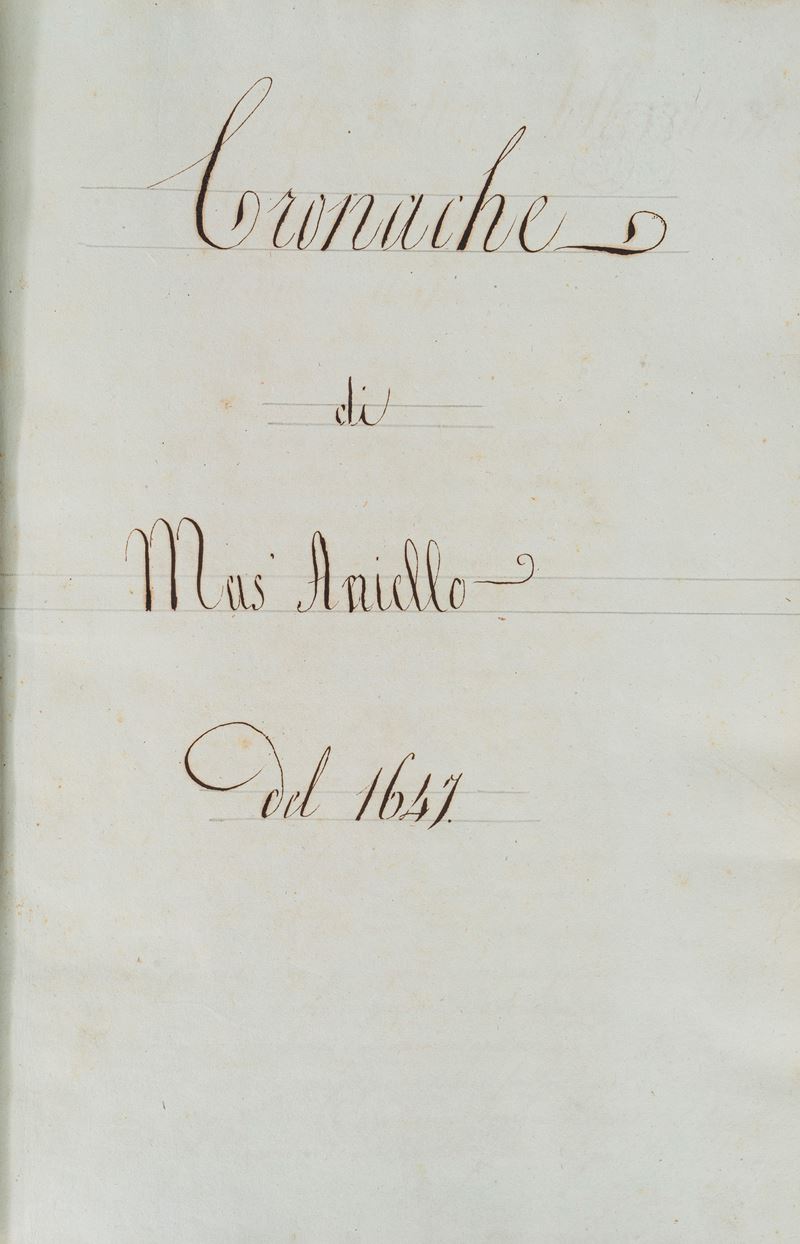 Cronache
di
Mas' Aniello
del 1647.